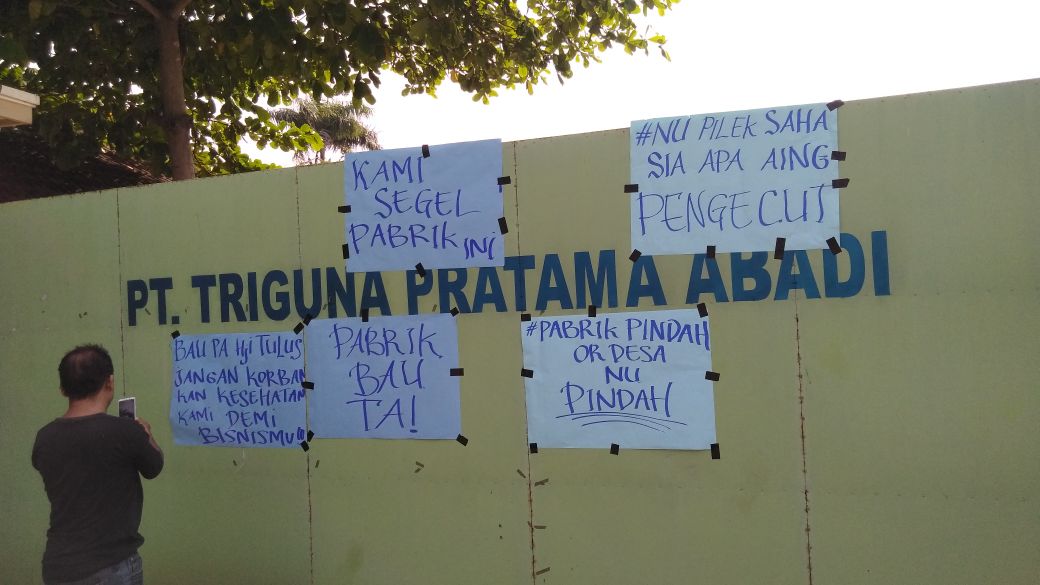 KAMI
SEGEL
PABRIK INI
#NU PILEK SAHA
SIA APA AING
PENGECUT
PT. TRIGUNA PRATAMA ABADI
BAU PA Hji TULUS
JANGAN KORBAN
KAN KESEHATAN
KAMI DEMI
BISNISMU
PABRIK
BAU
TA!
#PABRIK PINDAH
OR DESA
NU
PINDAH